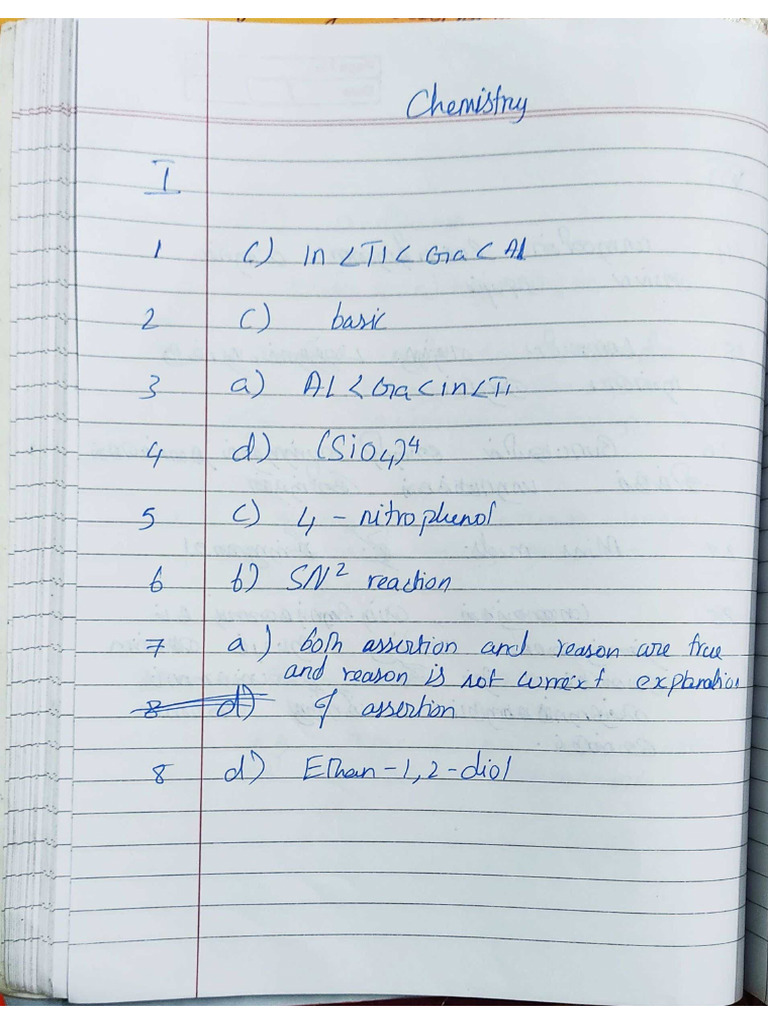 Chemistry
I
1 c) In < Tl < Ga < Al
2 c) basic
3 a) Al < Ga < in < Tl
4 d) (SiO4)4
5 c) 4 - nitrophenol
6 b) SN² reaction
7 a) both assertion and reason are true
and reason is not currext explanation
8 d) of assertion
8 d) Ethan - 1, 2 - diol